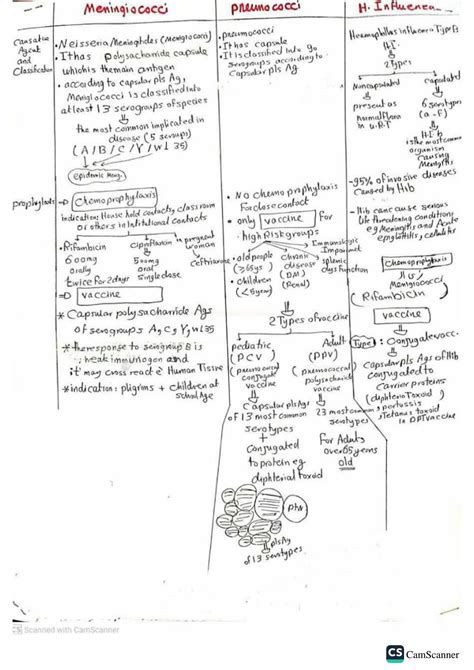 Meningiococci
pneumococci
H. Influenza
Causative
Agent
and
Classification
• Neisseria Meningitides (Meningiococci)
• It has polysacharide capsule
which is the main antigen
• according to capsular pls Ag,
Meningiococci is classified into
at least 13 serogroups of species
the most common implicated in
disease (5 serogroups)
(A/B/C/Y/W135)
epidemic
• pneumococci
• It has capsule
• It is classified into 90
serogroups according to
Capsular pls Ag
Haemophilus influenza Type B
H.I.
2 Types
Noncapsulated
capsulated
present as
Normal flora
in U.R.T
6 serotypes
(a-f)
H.I b
is the most common
organism
causing
Meningitis
~95% of invasive diseases
Caused by Hib
prophylaxis
Chemoprophylaxis
indication: House hold contacts, classroom
or others in Intitutional contacts
Rifambicin
600mg
orally
twice for 2 days
Cipriflaxin
500mg
oral
single dose
in pregnant
woman
Ceftriaxone
vaccine
* Capsular polysacharide Ags
of serogroups A, C, Y, W135
* there sponse to serogroup B is
; weak immunogen and
it may cross react é Human Tissue
* indication: pligrims + children at
school Age
• No chemo prophylaxis
for close contact
• only vaccine for
high Risk groups
• old people
(≥65ys)
• children
(<5year)
Chronic
disease
(DM)
(Renal)
Immunologic
Impaired
splenic
dysfunction
2 Types of vaccine
pediatric
(PCV)
(pneumococcal
conjugate
vaccine
Adult
(PPV)
(pneumococcal
polysacharide
vaccine
Capsular pls Ags
of 13 most common
serotypes
+
Conjugated
to protein eg
diphterial toxoid
23 most common
serotypes
For Adults
over 65 years
old
ptn
pls Ag
of 13 serotypes
- Hib can cause serious
life threatening conditions
eg Meningitis and Acute
epiglottitis, cellulitis
Chemoprophylaxis
Meningiococci
(Rifambicin)
vaccine
Type: Conjugate vacc.
Capsular pls Ags of Hib
conjugated to
Carrier proteins
(diphteria Toxoid)
pertussis
Tetanus toxoid
in DPT vaccine
CS Scanned with CamScanner
CS CamScanner